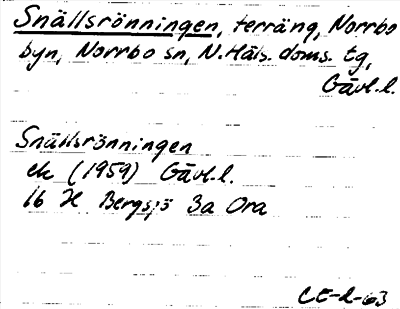 Snällsrönningen, terräng, Norrbo
byn, Norrbo sn, N.Häls. doms. tg,
Gävl.l.
Snällsrönningen
ek (1959) Gävl.l.
16 H Bergsjö 3a Ora
CE-l-63